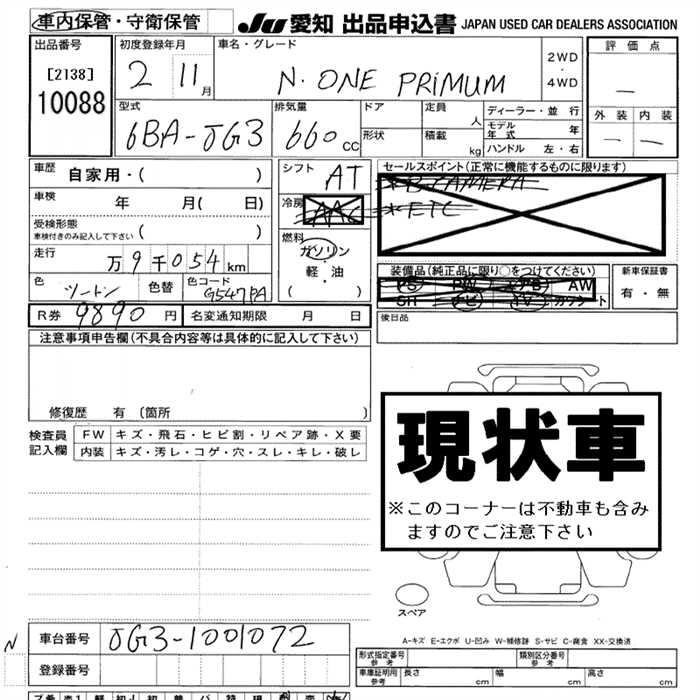 車内保管・守衛保管 JU 愛知 出品申込書 JAPAN USED CAR DEALERS ASSOCIATION
出品番号 [2138] 10088
初度登録年月 2 11月
車名・グレード N-ONE PRIMUM
2WD・4WD
評価点 —
外装 内装
— —
型式 6BA-JG3
排気量 660 cc
ドア 定員 人
形状 積載 kg
ディーラー・並行
モデル年式 年
ハンドル 左・右
車歴 自家用・( )
車検 年 月( 日)
受検形態 車検付きのみ記入して下さい ( )
走行 万9千054km
色 ツートン 色替 色コード G547PA
シフト AT
冷房 AAC
燃料 ガソリン・軽・油 ( )
セールスポイント(正常に機能するものに限ります)
*B-CAMERA
*ETC
装備品(純正品に限り○をつけてください)
PS PW エアB AW
SH ナビ TV カワシート
新車保証書 有・無
R券 9890円 名変通知期限 月 日
後日品
注意事項申告欄(不具合内容等は具体的に記入して下さい)
修復歴 有 (箇所 )
検査員記入欄
FW キズ・飛石・ヒビ割・リペア跡・X要
内装 キズ・汚レ・コゲ・穴・スレ・キレ・破レ
現状車
※このコーナーは不動車も含みますのでご注意下さい
スペア
A-キズ E-エクボ U-凹み W-補修跡 S-サビ C-腐食 XX-交換済
N 車台番号 JG3-1001072
登録番号
形式指定番号 参考 類別区分番号 参考
車庫証明用 参考 長さ cm 幅 cm 高さ cm